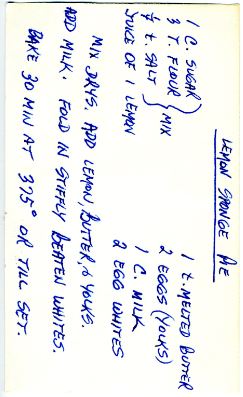 LEMON SPONGE PIE
1 C. SUGAR
3 T. FLOUR } MIX
¼ t. SALT
JUICE OF 1 LEMON
1 t. MELTED BUTTER
2 EGGS (YOLKS)
1 C. MILK
2 EGG WHITES
MIX DRYS, ADD LEMON, BUTTER, & YOLKS.
ADD MILK. FOLD IN STIFFLY BEATEN WHITES.
BAKE 30 MIN AT 375° OR TILL SET.